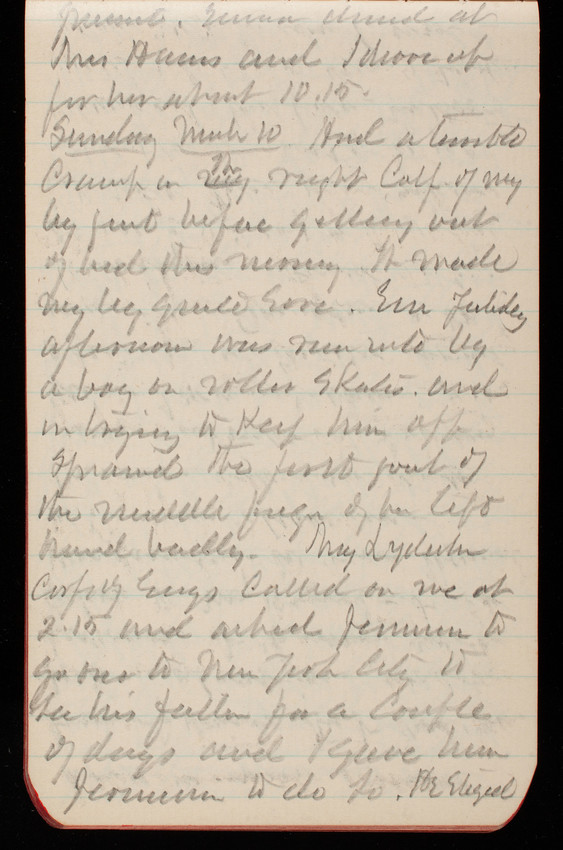 present. Emma dined at
Mrs Harris and I drove up
for her about 10.15.
Sunday March 10 Had a terrible
Cramp in the right Calf of my
leg just before getting out
of bed this morning It made
my leg quite Sore. Em Friday
afternoon was run into by
a boy on roller Skates and
in trying to Keep him off
Sprained the first joint of
the middle finger of her left
hand badly. Maj Lydecker
Corps of Engs Called on me at
2.15 and asked permission to
go over to New York City to
See his father for a Couple
of days and I gave him
permission to do so. He Stayed